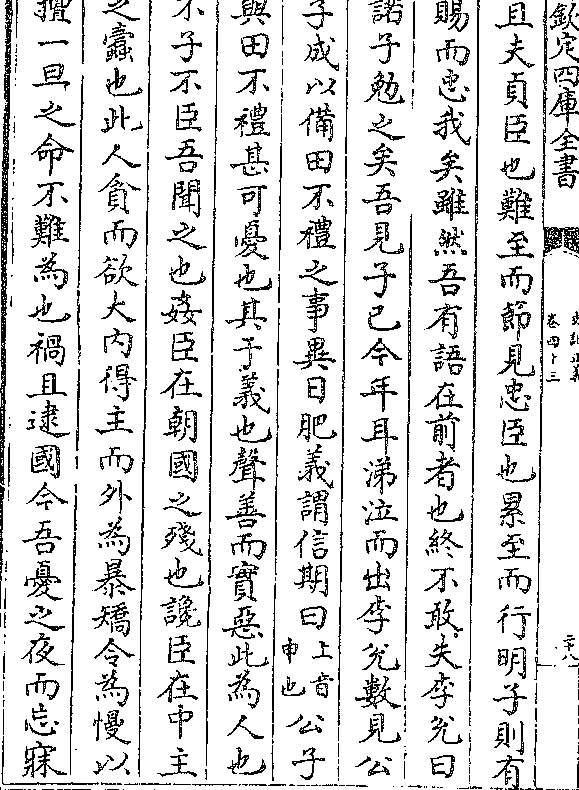 欽定四庫全書
史記正義
卷四十三
二十八
且夫貞臣也難至而節見忠臣也累至而行明子則有
賜而忠我矣雖然吾有語在前者也終不敢失李兊曰
諾子勉之矣吾見子已今年耳涕泣而出李兊數見公
子成以備田不禮之事異日肥義謂信期曰上音申也公子
與田不禮甚可憂也其于義也聲善而實惡此為人也
不子不臣吾聞之也姦臣在朝國之殘也讒臣在中主
之蠹也此人貪而欲大內得主而外為暴矯令為慢以
擅一旦之命不難為也禍且逮國今吾憂之夜而忘寐